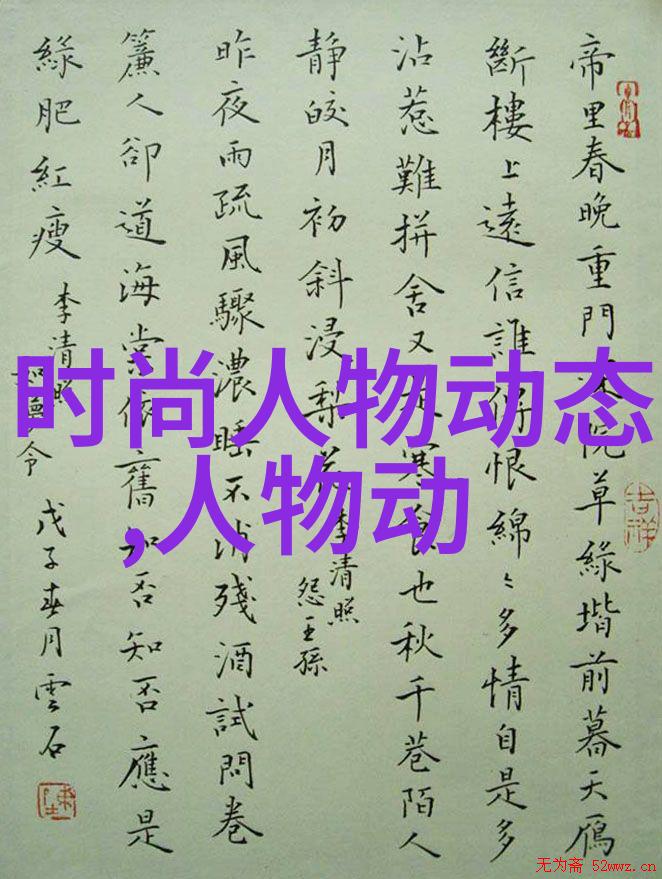 帝里春晚重門深院草綠堦前暮天雁
斷樓上遠信誰傳恨綿〻多情自是多
沾惹難拼舍又是寒食也秋千巷陌人
静皎月初斜浸梨花
李清照
怨王孫
昨夜雨疏風驟濃睡不消殘酒試問卷
簾人卻道海棠依舊知否知否應是
綠肥紅瘦
李清照
如夢令
戊子春月雲石
吉祥
时尚人物动态
,人物动
无为斋 52wwz.cn